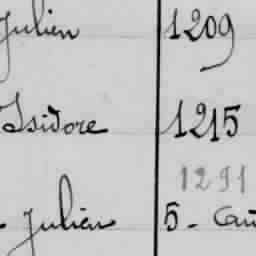 Julien 1209
Isidore 1215
1291
- Julien 5 - Can